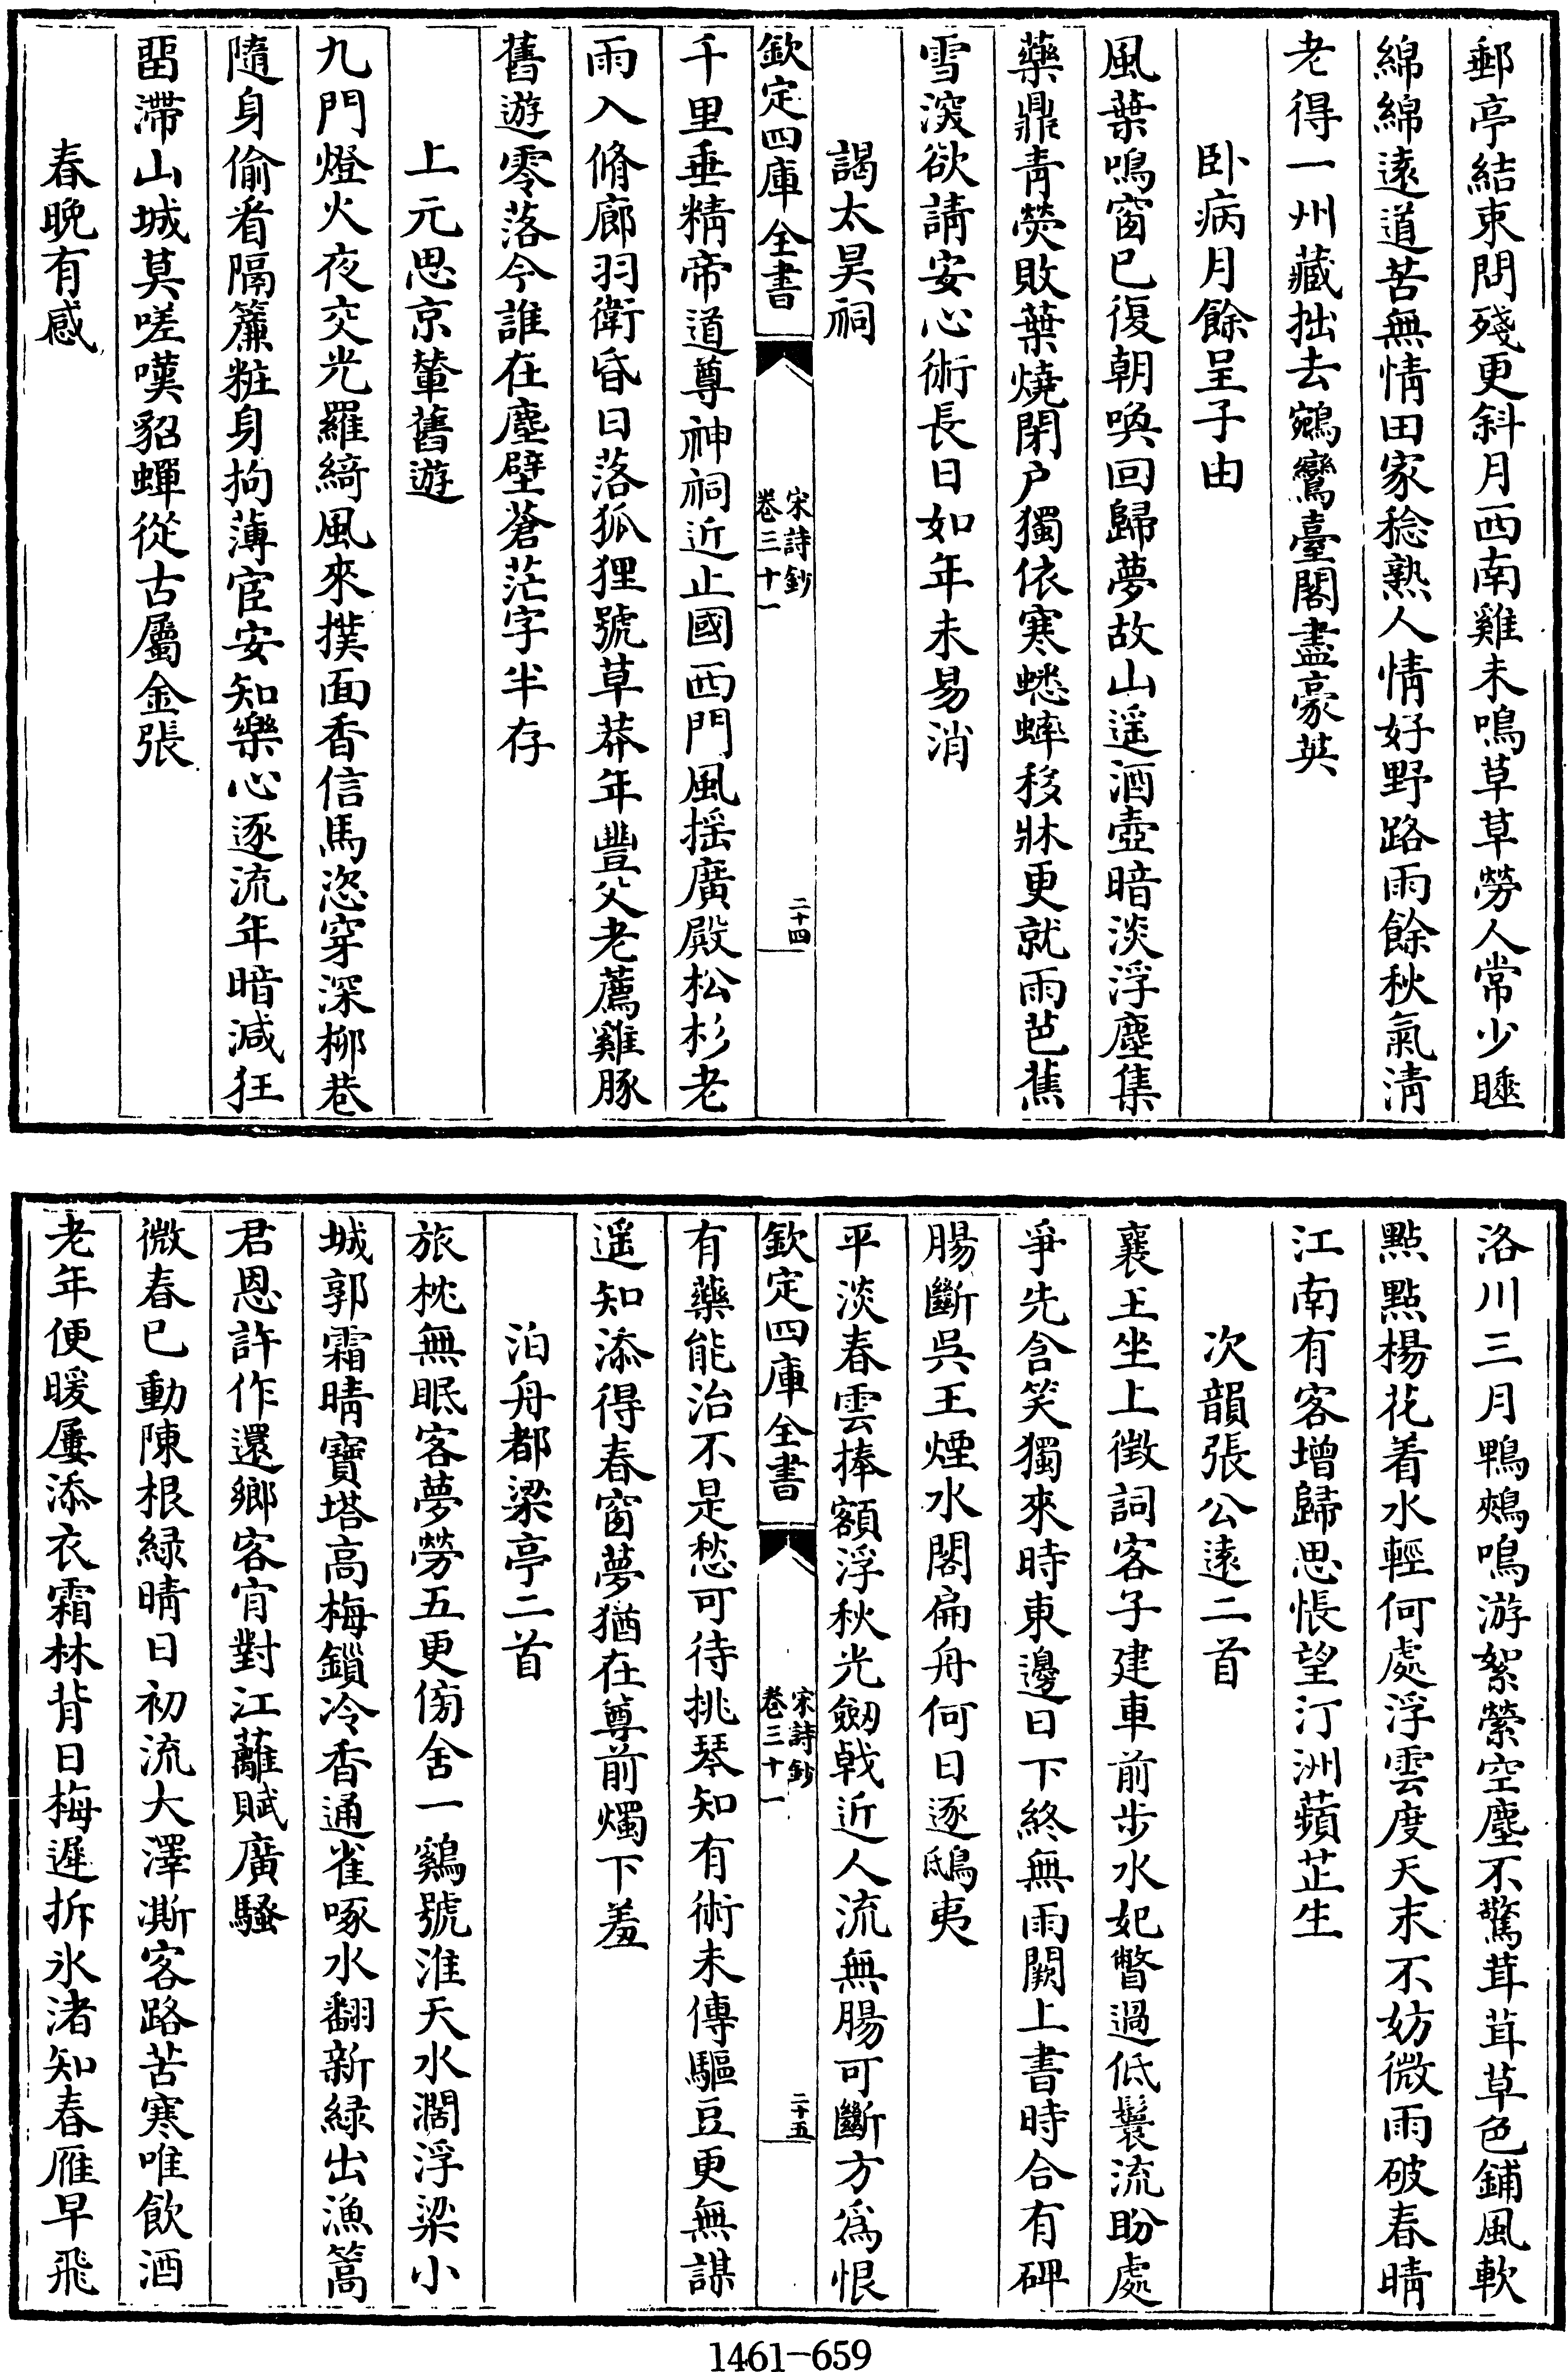 郵亭結束問殘更斜月西南雞未鳴草草勞人常少睡
綿綿遠道苦無情田家稔熟人情好野路雨餘秋氣清
老得一州藏拙去鵷鸞臺閣盡豪英
卧病月餘呈子由
風葉鳴窗已復朝喚回歸夢故山遥酒壺暗淡浮塵集
藥鼎青熒敗葉燒閉户獨依寒蟋蟀移牀更就雨芭蕉
雪深欲請安心術長日如年未易消
謁太昊祠
欽定四庫全書
宋詩鈔
卷三十一
二十四
千里垂精帝道尊神祠近止國西門風摇廣殿松杉老
雨入脩廊羽衛昏日落狐狸號草莽年豐父老薦雞豚
舊遊零落今誰在塵壁蒼茫字半存
上元思京輦舊遊
九門燈火夜交光羅綺風來撲面香信馬恣穿深柳巷
隨身偷看隔簾粧身拘薄宦安知樂心逐流年暗減狂
畱滯山城莫嗟嘆貂蟬從古屬金張
春晚有感
洛川三月鴨鵊鳴游絮縈空塵不驚茸茸草色鋪風軟
點點楊花着水輕何處浮雲度天末不妨微雨破春晴
江南有客增歸思悵望汀洲蘋芷生
次韻張公遠二首
襄王坐上徴詞客子建車前步水妃瞥過低鬟流盼處
爭先含笑獨來時東邊日下終無雨闕上書時合有碑
腸斷吳王煙水閣扁舟何日逐鴟夷
平淡春雲捧額浮秋光劒戟近人流無腸可斷方爲恨
欽定四庫全書
宋詩鈔
卷三十一
二十五
有藥能治不是愁可待挑琴知有術未傳驅豆更無謀
遥知添得春窗夢猶在尊前燭下羞
泊舟都梁亭二首
旅枕無眠客夢勞五更傍舍一鷄號淮天水濶浮梁小
城郭霜晴寶塔高梅鎖冷香通雀啄水翻新緑出漁篙
君恩許作還鄉客宵對江蘺賦廣騷
微春已動陳根緑晴日初流大澤澌客路苦寒唯飲酒
老年便暖屢添衣霜林背日梅遲拆氷渚知春雁早飛
1461-659